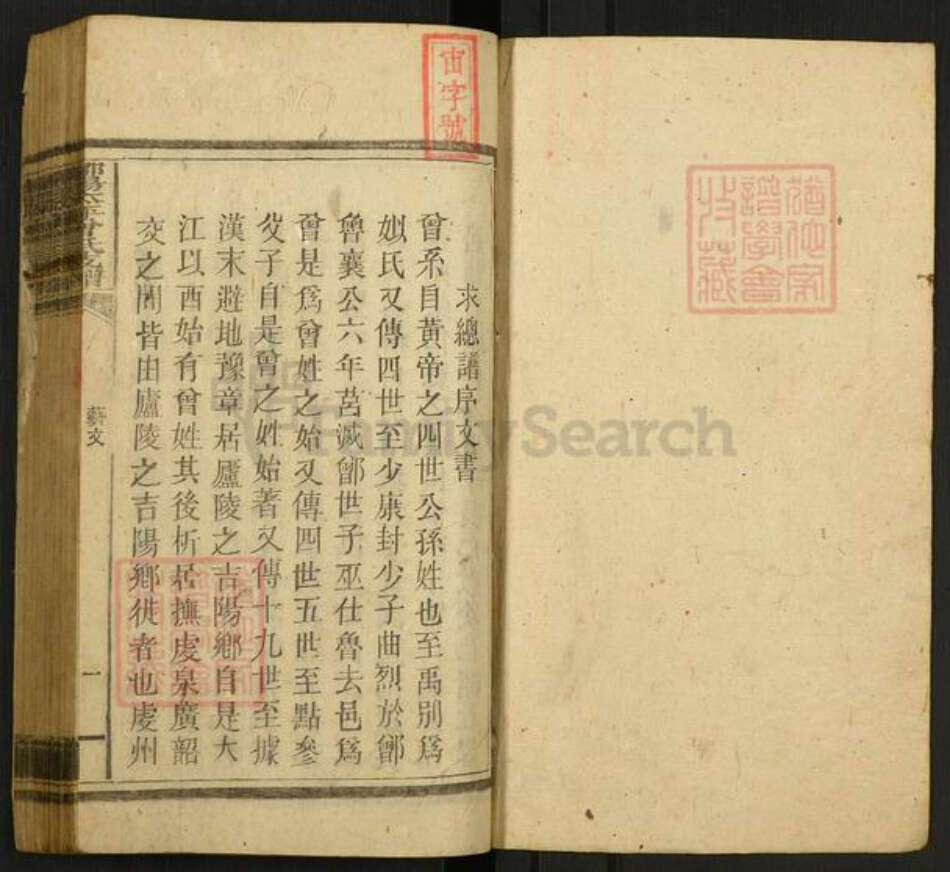 宙字號
求總譜序文書
曾系自黃帝之四世公孫姓也至禹別爲
姒氏又傳四世至少康封少子曲烈於鄫
魯襄公六年莒滅鄫世子巫仕魯去邑爲
曾是爲曾姓之始又傳四世五世至點參
父子自是曾之姓始著又傳十九世至據
漢末避地豫章居廬陵之吉陽鄉自是大
江以西始有曾姓其後析居撫虔泉廣韶
交之間皆由廬陵之吉陽鄉徙者也虔州
藝文
一
譜學會
收藏
FamilySearch